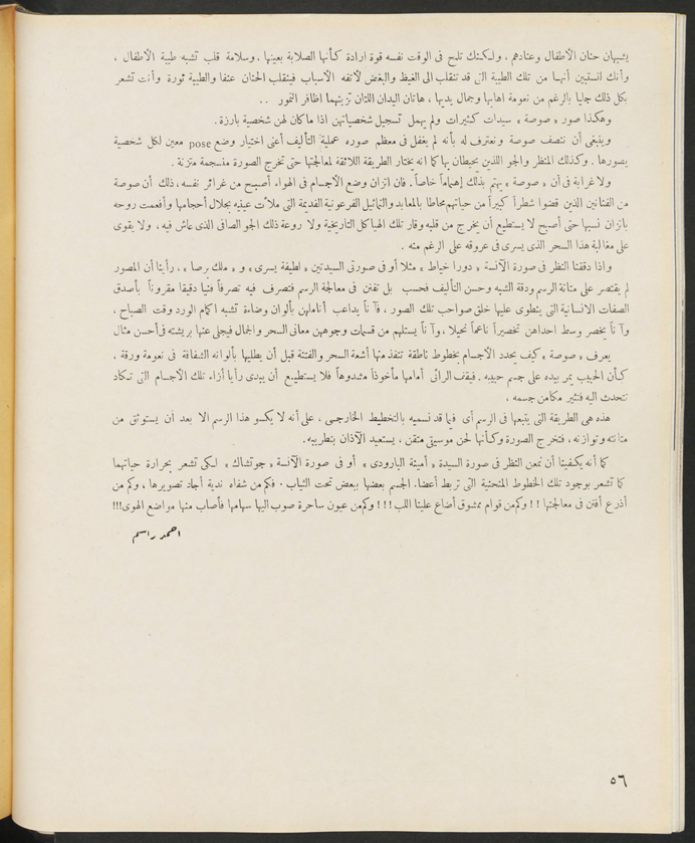 يشبهان حنان الأطفال وعنادهم ، ولكنك تلمح فى الوقت نفسه قوة ارادة كأنها الصلابة بعينها ، وسلامة قلب تشبه طيبة الأطفال ،
وأنك لتستبين أنهما من تلك الطيبة التى قد تنقلب الى الغيظ والبغض لأتفه الأسباب فينقلب الحنان عنفا والطيبة ثورة وأنت تشعر
بكل ذلك جليا بالرغم من نعومة اهابها وجمال يديها ، هاتان اليدان اللتان تزينهما اظافر النمور . .
وهكذا صور « صوصة » سيدات كثيرات ولم يهمل تسجيل شخصياتهن اذا ما كان لهن شخصية بارزة .
وينبغى أن ننصف صوصة ونعترف له بأنه لم يغفل فى معظم صوره عملية التأليف أعنى اختيار وضع pose معين لكل شخصية
يصورها . وكذلك المنظر والجو اللذين يحيطان بها كما انه يختار الطريقة اللائقة لمعالجتها حتى تخرج الصورة منسجمة متزنة .
ولا غرابة فى أن « صوصة » يهتم بذلك إهتماماً خاصاً . فان اتزان وضع الأجسام فى الهواء أصبح من غرائز نفسه ، ذلك أن صوصة
من الفنانين الذين قضوا شطراً كبيراً من حياتهم محاطا بالمعابد والتماثيل الفرعونية القديمة التى ملأت عينيه بجلال أحجامها وأفعمت روحه
باتزان نسبها حتى أصبح لا يستطيع أن يخرج من قلبه وقار تلك الهياكل التاريخية ولا روعة ذلك الجو الصافى الذى عاش فيه ، ولا يقوى
على مغالبة هذا السحر الذى يسرى فى عروقه على الرغم منه .
واذا دققنا النظر فى صورة الآنسة « دورا خياط » مثلا أو فى صورتى السيدتين « لطيفة يسرى » و « ملك برصا » ، رأينا أن المصور
لم يقتصر على متانة الرسم ودقة الشبه وحسن التأليف فحسب بل تفنن فى معالجة الرسم فتصرف فيه تصرفاً فنيا دقيقا مقروناً بأصدق
الصفات الانسانية التى ينطوى عليها خلق صواحب تلك الصور ، فآناً يداعب أناملهن بألوان وضاءة تشبه اكمام الورد وقت الصباح ،
وآناً يخصر وسط احداهن تخصيراً ناعماً نحيلا ، وآناً يستلهم من قسمات وجوههن معانى السحر والجمال فيجلى عنها بريشته فى أحسن مثال
يعرف « صوصة » كيف يحدد الأجسام بخطوط ناطقة تنفذ منها أشعة السحر والفتنة قبل أن يطليها بألوانه الشفافة فى نعومة ورقة ،
كأن الحبيب يمر بيده على جسم حبيبه . فيقف الرائى أمامها مأخوذاً مشدوهاً فلا يستطيع أن يبدى رأيا أزاء تلك الأجسام التى تكاد
تتحدث اليه فتثير مكامن جسمه .
هذه هى الطريقة التى يتبعها فى الرسم أى فيما قد نسميه بالتخطيط الخارجى ، على أنه لا يكسو هذا الرسم الا بعد أن يستوثق من
متانته وتوازنه ، فتخرج الصورة وكأنها لحن موسيقى متقن ، يستعيد الآذان بتطريبه .
كما أنه يكفينا أن نمعن النظر فى صورة السيدة « أمينة البارودى » أو فى صورة الآنسة « جوتشاك » لكى تشعر بحرارة حياتهما
كما تشعر بوجود تلك الخطوط المنحنية التى تربط أعضاء الجسم بعضها ببعض تحت الثياب . فكم من شفاه ندية أجاد تصويرها ، وكم من
أذرع أفتن فى معالجتها !! وكم من قوام ممشوق أضاع علينا اللب !!! وكم من عيون ساحرة صوب اليها سهامها فأصاب منها مواضع الهوى !!!
احمد راسم
٥٦